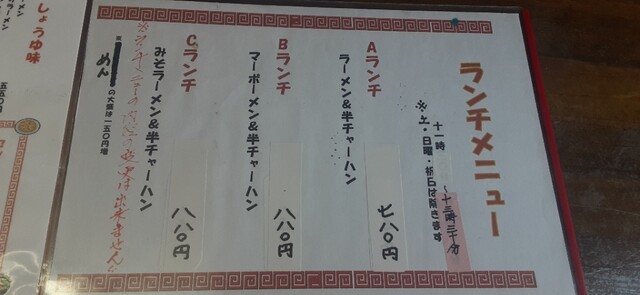 ランチメニュー
十一時〜十三時三十分
※土・日曜・祈日は除きます
Aランチ
ラーメン&半チャーハン
七八〇円
Bランチ
マーボーメン&半チャーハン
八八〇円
Cランチ
みそラーメン&半チャーハン
八八〇円
めん
の大盛は一五〇円増
しょうゆ味